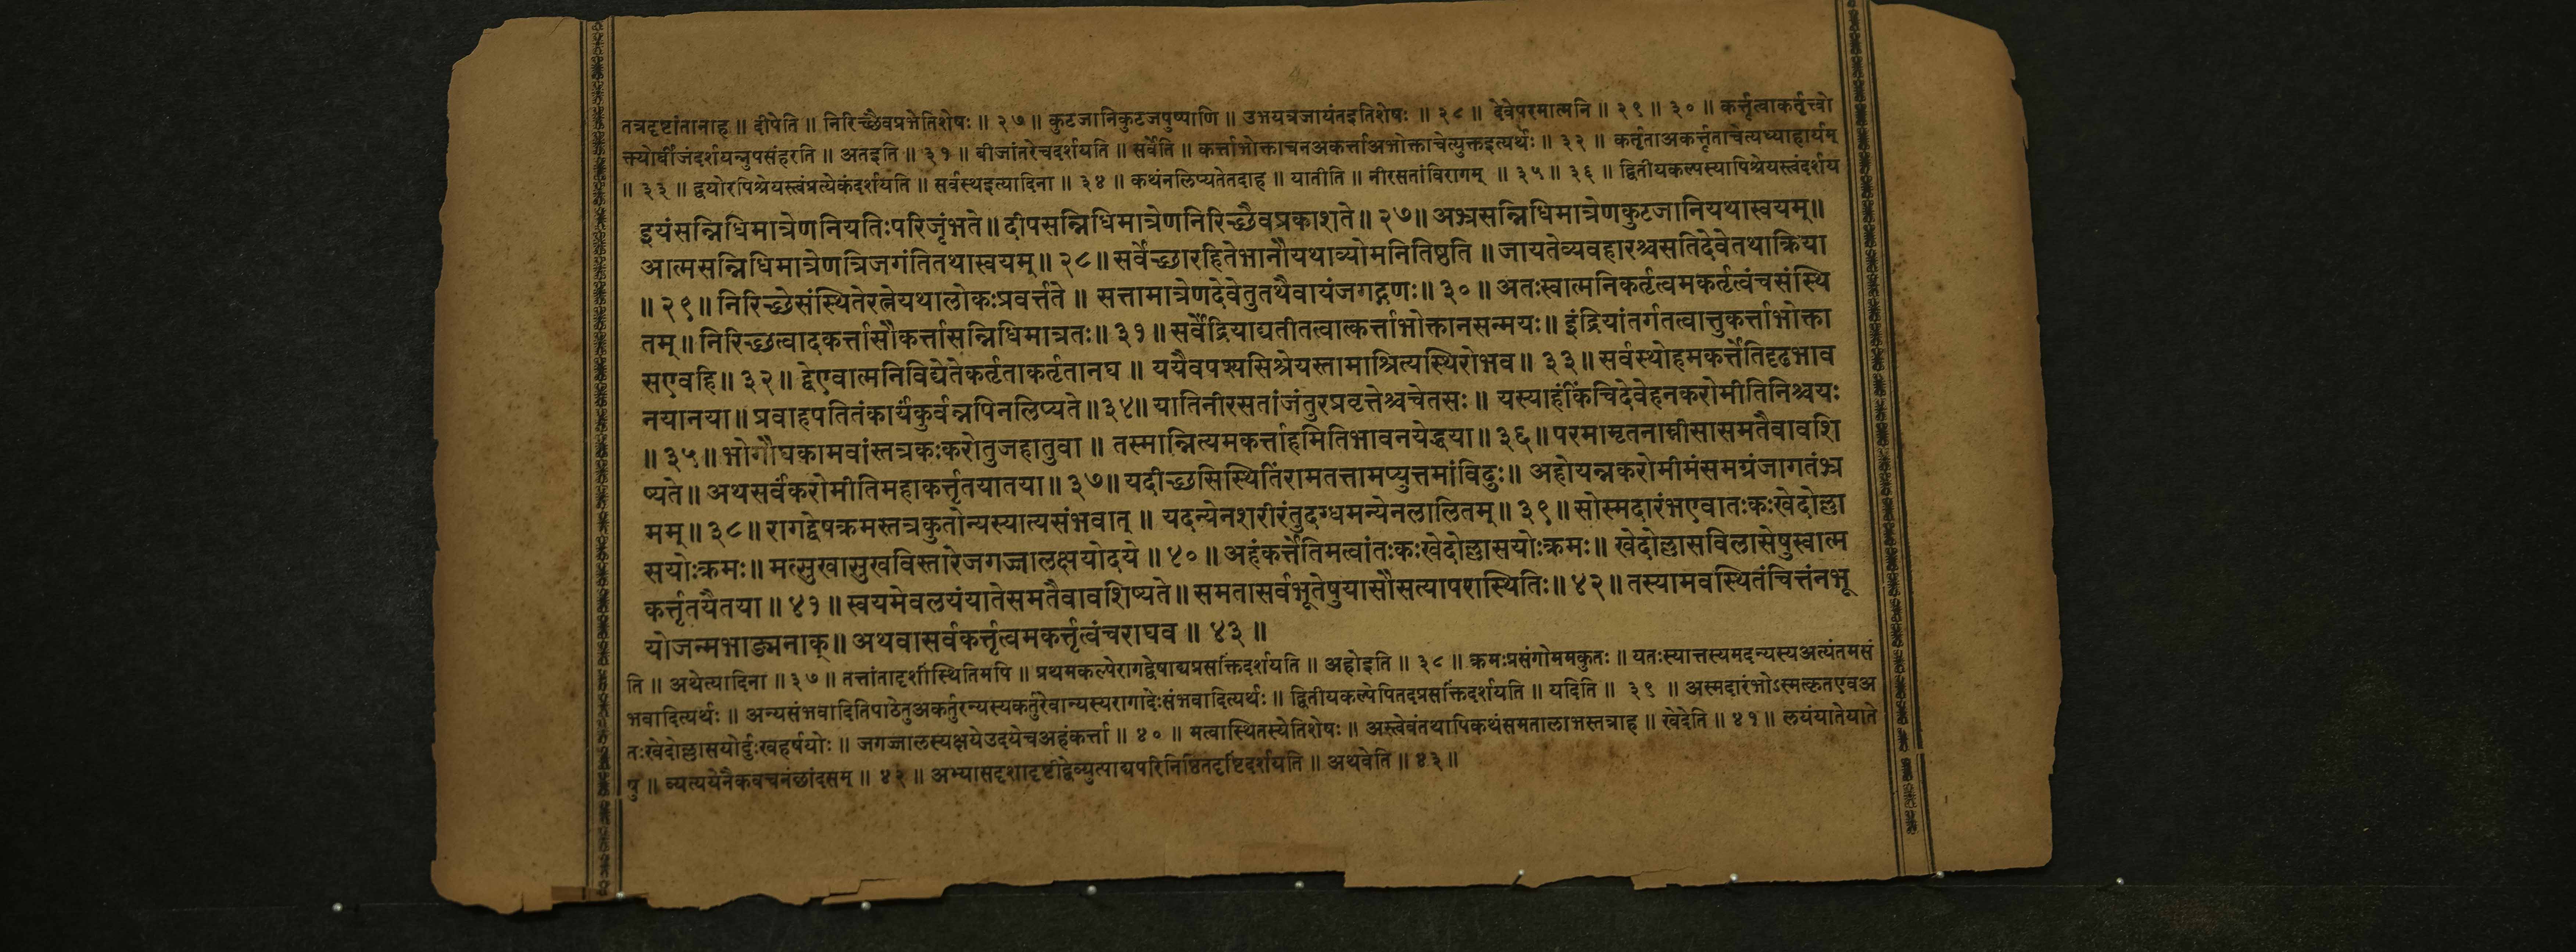 तत्रदृष्टांतानाह ॥ दीपेति ॥ निरिच्छैवप्रभेतिशेषः ॥ २७ ॥ कुटजानिकुटजपुष्पाणि ॥ उभयत्रजायंतइतिशेषः ॥ २८ ॥ देवेपरमात्मनि ॥ २९ ॥ ३० ॥ कर्त्तृत्वाकर्तृत्त्वो
क्त्योर्बीजंदर्शयन्नुपसंहरति ॥ अतइति ॥ ३१ ॥ बीजांतरेचदर्शयति ॥ सर्वेति ॥ कर्त्ताभोक्ताचनअकर्त्ताअभोक्ताचेत्युक्तइत्यर्थः ॥ ३२ ॥ कर्तृताअकर्त्तृताचेत्यध्याहार्यम्
॥ ३३ ॥ द्वयोरपिश्रेयस्त्वंप्रत्येकंदर्शयति ॥ सर्वस्थइत्यादिना ॥ ३४ ॥ कथंनलिप्यतेतदाह ॥ यातीति ॥ नीरसतांविरागम् ॥ ३५ ॥ ३६ ॥ द्वितीयकल्पस्यापिश्रेयस्त्वंदर्शय
इयंसन्निधिमात्रेणनियतिःपरिजृंभते॥ दीपसन्निधिमात्रेणनिरिच्छैवप्रकाशते॥ २७॥ अभ्रसन्निधिमात्रेणकुटजानियथास्वयम्॥
आत्मसन्निधिमात्रेणत्रिजगंतितथास्वयम्॥ २८॥ सर्वेच्छारहितेभानौयथाव्योमनितिष्ठति ॥ जायतेव्यवहारश्चसतिदेवेतथाक्रिया
॥ २९॥ निरिच्छेसंस्थितेरत्नेयथालोकःप्रवर्त्तते ॥ सत्तामात्रेणदेवेतुतथैवायंजगद्गणः॥ ३०॥ अतःस्वात्मनिकर्तृत्वमकर्तृत्वंचसंस्थि
तम्॥ निरिच्छत्वादकर्त्तासौकर्त्तासन्निधिमात्रतः॥ ३१॥ सर्वेंद्रियाद्यतीतत्वात्कर्त्ताभोक्तानसन्मयः॥ इंद्रियांतर्गतत्वात्तुकर्त्ताभोक्ता
सएवहि॥ ३२॥ द्वेएवात्मनिविद्येतेकर्तृताकर्तृतानघ ॥ ययैवपश्यसिश्रेयस्तामाश्रित्यस्थिरोभव॥ ३३॥ सर्वस्थोहमकर्त्तेतिदृढभाव
नयानया॥ प्रवाहपतितंकार्यंकुर्वन्नपिनलिप्यते॥३४॥ यातिनीरसतांजंतुरप्रवृत्तेश्चचेतसः॥ यस्याहंकिंचिदेवेहनकरोमीतिनिश्चयः
॥ ३५॥ भोगौघकामवांस्तत्रकःकरोतुजहातुवा ॥ तस्मान्नित्यमकर्त्ताहमितिभावनयेद्धया॥ ३६॥ परमामृतनाम्नीसासमतैवावशि
ष्यते॥ अथसर्वंकरोमीतिमहाकर्त्तृतयातया॥ ३७॥ यदीच्छसिस्थितिंरामतत्तामप्युत्तमांविदुः॥ अहोयन्नकरोमीमंसमग्रंजागतंभ्र
मम्॥ ३८॥ रागद्वेषक्रमस्तत्रकुतोन्यस्यात्यसंभवात् ॥ यदन्येनशरीरंतुदग्धमन्येनलालितम्॥ ३९॥ सोस्मदारंभएवातःकःखेदोल्ला
सयोःक्रमः॥ मत्सुखासुखविस्तारेजगज्जालक्षयोदये ॥ ४०॥ अहंकर्त्तेतिमत्वांतःकःखेदोल्लासयोःक्रमः॥ खेदोल्लासविलासेषुस्वात्म
कर्त्तृतयैतया॥ ४१॥ स्वयमेवलयंयातेसमतैवावशिष्यते॥ समतासर्वभूतेषुयासौसत्यापरास्थितिः॥ ४२॥ तस्यामवस्थितंचित्तंनभू
योजन्मभाङ्मनाक्॥ अथवासर्वकर्त्तृत्वमकर्त्तृत्वंचराघव ॥ ४३ ॥
ति ॥ अथेत्यादिना ॥ ३७ ॥ तत्तांतादृशींस्थितिमपि ॥ प्रथमकल्पेरागद्वेषाद्यप्रसक्तिंदर्शयति ॥ अहोइति ॥ ३८ ॥ क्रमःप्रसंगोममकुतः ॥ यतःस्यात्तस्यमदन्यस्यअत्यंतमसं
भवादित्यर्थः ॥ अन्यसंभवादितिपाठेतुअकर्तुरन्यस्यकर्तुरेवान्यस्यरागादेःसंभवादित्यर्थः ॥ द्वितीयकल्पेपितदप्रसक्तिंदर्शयति ॥ यदिति ॥ ३९ ॥ अस्मदारंभोऽस्मत्कृतएवअ
तःखेदोल्लासयोर्दुःखहर्षयोः ॥ जगज्जालस्यक्षयेउदयेचअहंकर्त्ता ॥ ४० ॥ मत्वास्थितस्येतिशेषः ॥ अस्त्वेवंतथापिकथंसमतालाभस्तत्राह ॥ खेदेति ॥ ४१ ॥ लयंयातेयाते
षु ॥ व्यत्ययेनैकवचनंछांदसम् ॥ ४२ ॥ अभ्यासदृशादृष्टीद्वेव्युत्पाद्यपरिनिष्ठितदृष्टिंदर्शयति ॥ अथवेति ॥ ४३ ॥